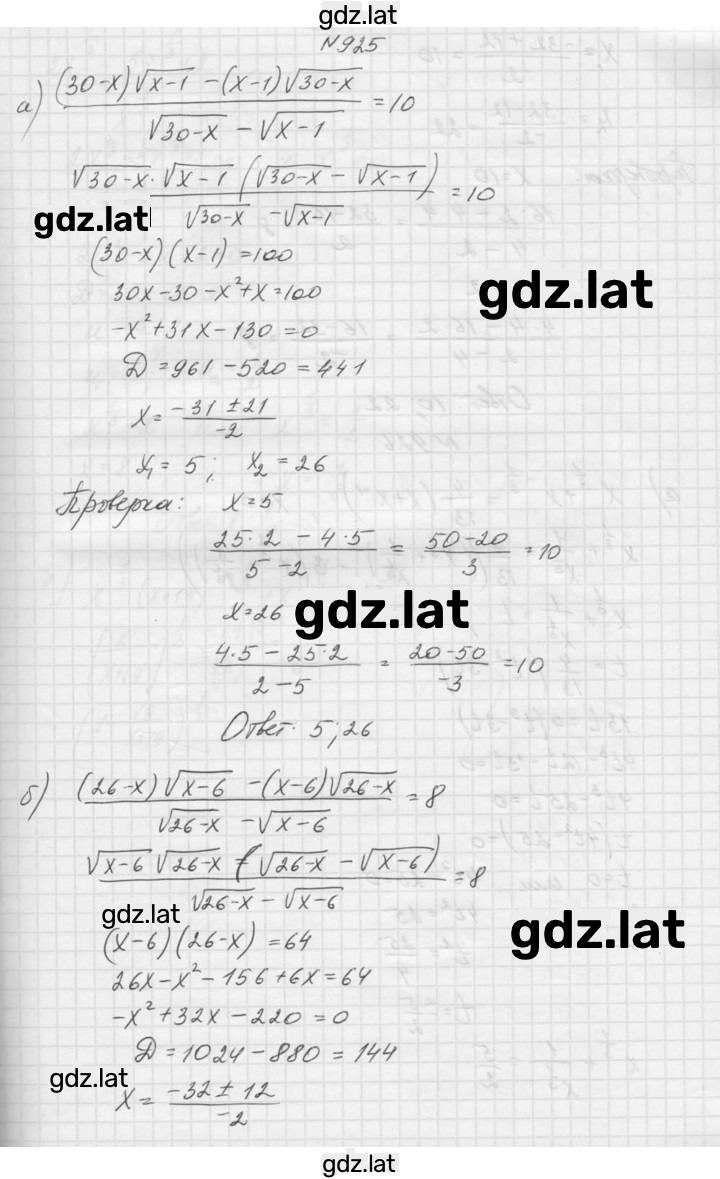 gdz.lat
№925
а) ((30-x)√(x-1) - (x-1)√(30-x)) / (√(30-x) - √(x-1)) = 10
(√(30-x)·√(x-1) (√(30-x) - √(x-1))) / (√(30-x) - √(x-1)) = 10
gdz.lat
(30-x)(x-1)=100
gdz.lat
30x-30-x²+x=100
-x²+31x-130=0
D=961-520=441
x= (-31±21) / -2
x₁=5; x₂=26
Проверка: x=5
(25·2 - 4·5) / (5-2) = (50-20) / 3 = 10
x=26
gdz.lat
(4·5 - 25·2) / (2-5) = (20-50) / -3 = 10
Ответ: 5; 26
б) ((26-x)√(x-6) - (x-6)√(26-x)) / (√(26-x) - √(x-6)) = 8
(√(x-6) √(26-x) (√(26-x) - √(x-6))) / (√(26-x) - √(x-6)) = 8
gdz.lat
gdz.lat
(x-6)(26-x)=64
26x-x²-156+6x=64
-x²+32x-220=0
D=1024-880=144
gdz.lat
x= (-32±12) / -2
gdz.lat